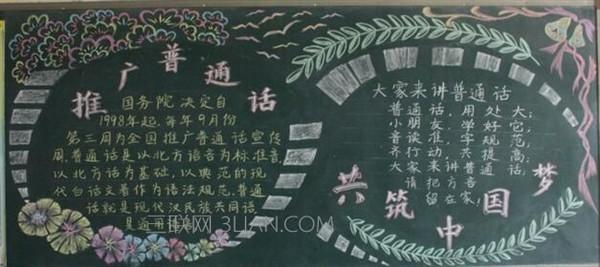 推广普通话
国务院决定自
1998年起,每年9月份
第三周为全国推广普通话宣传
周.普通话是以北方语音为标准音
以北方话为基础,以典范的现
代白话文著作为语法规范.普通
话就是现代汉民族共同语
是通用
三联网 3LIAN.COM
大家来讲普通话
普通话,用处大;
小朋友,学好它,
音准,字规范;
齐行动,共提高;
大家来讲普通话;
共筑中国梦